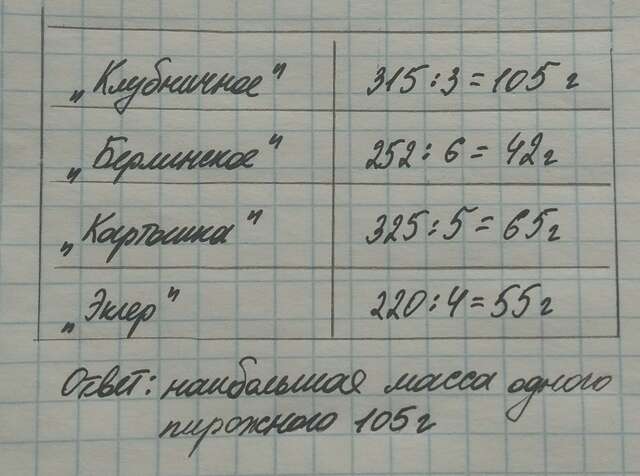 „Клубничное" 315 : 3 = 105 г
„Берлинское" 252 : 6 = 42 г
„Картошка" 325 : 5 = 65 г
„Эклер" 220 : 4 = 55 г
Ответ: наибольшая масса одного
пирожного 105 г